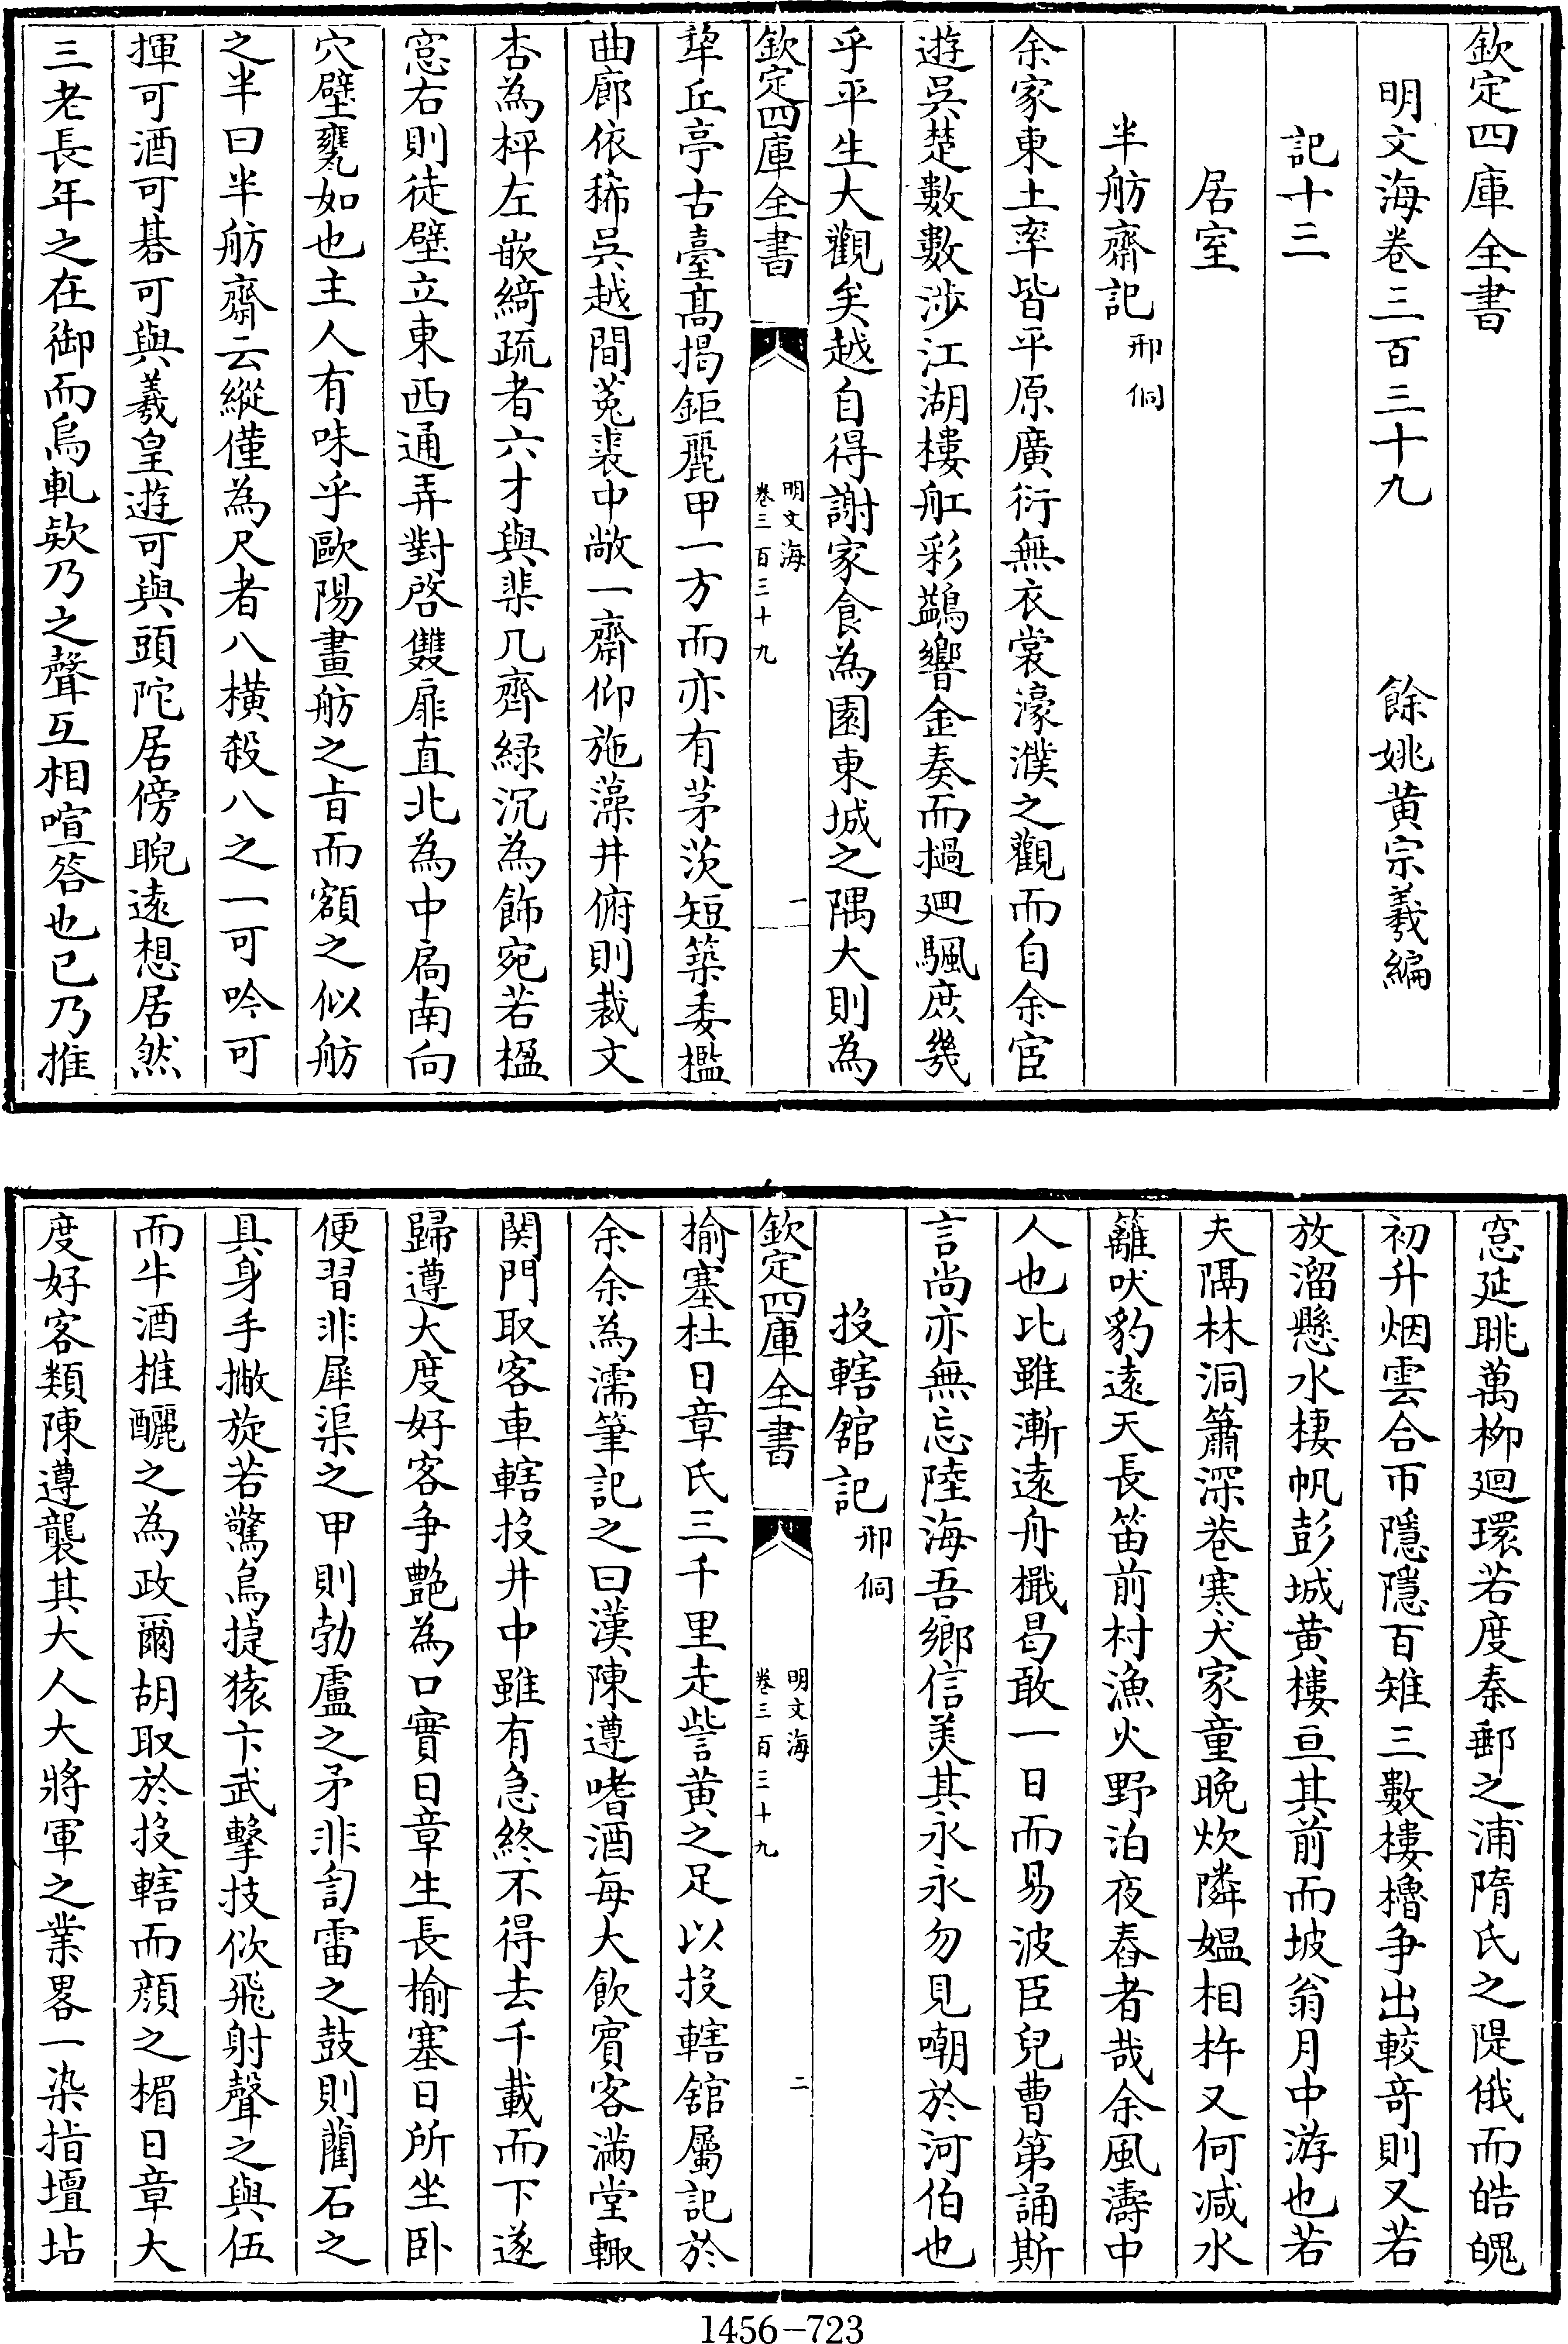 欽定四庫全書
明文海卷三百三十九　餘姚黃宗羲編
記十三
居室
半舫齋記邢侗
余家東土率皆平原廣衍無衣裳濠濮之觀而自余宦
遊吳楚數數渉江湖樓舡彩鷁響金奏而撾迴颿庶幾
乎平生大觀矣越自得謝家食為園東城之隅大則為
欽定四庫全書
明文海
卷三百三十九
一
犖丘亭古臺髙掲鉅麗甲一方而亦有茅茨短築委檻
曲廊依稀吳越間菟裘中敞一齋仰施藻井俯則裁文
杏為枰左嵌綺疏者六才與棐几齊緑沉為飾宛若楹
窓右則徒壁立東西通弄對啓雙扉直北為中扄南向
穴壁甕如也主人有味乎歐陽畫舫之㫖而額之似舫
之半曰半舫齋云縱僅為尺者八橫殺八之一可吟可
揮可酒可碁可與羲皇遊可與頭陀居傍睨遠想居然
三老長年之在御而烏軋欵乃之聲互相喧答也已乃推
窓延眺萬栁迴環若度秦郵之浦隋氏之隄俄而皓魄
初升烟雲合帀隱隱百雉三數樓櫓争出較竒則又若
放溜懸水棲帆彭城黃樓亘其前而坡翁月中游也若
夫隔林洞簫深巷寒犬家童晚炊隣媼相杵又何减水
籬吠豹逺天長笛前村漁火野泊夜舂者哉余風濤中
人也比雖漸遠舟檝曷敢一日而易波臣兒曹第誦斯
言尚亦無忘陸海吾鄉信美其永永勿見嘲於河伯也
投轄舘記邢侗
欽定四庫全書
明文海
卷三百三十九
二
揄塞杜日章氏三千里走訾黃之足以投轄舘屬記於
余余為濡筆記之曰漢陳遵嗜酒每大飲賓客滿堂輙
関門取客車轄投井中雖有急終不得去千載而下遂
歸遵大度好客争艷為口實日章生長揄塞日所坐卧
便習非犀渠之甲則勃盧之矛非訇雷之鼓則藺石之
具身手撇旋若驚鳥㨗猿卞武擊技佽飛射聲之與伍
而牛酒椎釃之為政爾胡取於投轄而顔之楣日章大
度好客類陳遵襲其大人大將軍之業畧一染指壇坫
1456-723